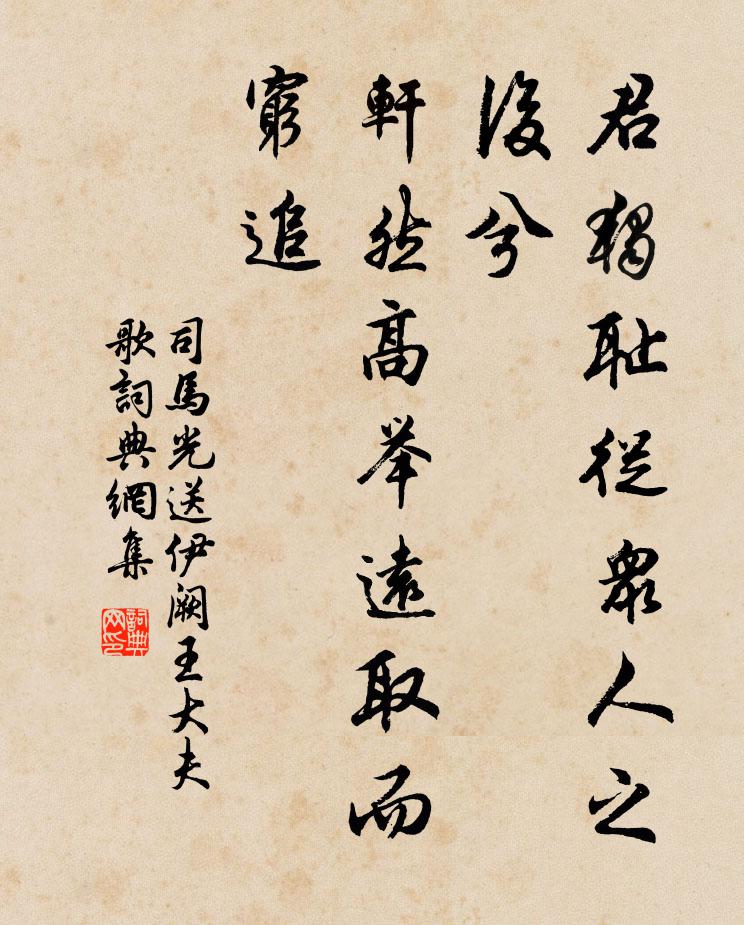 君獨耻從衆人之
後兮
軒然高举遠取而
窮追
司馬光送伊阙王大夫
歌詞典網集
詞典
网印